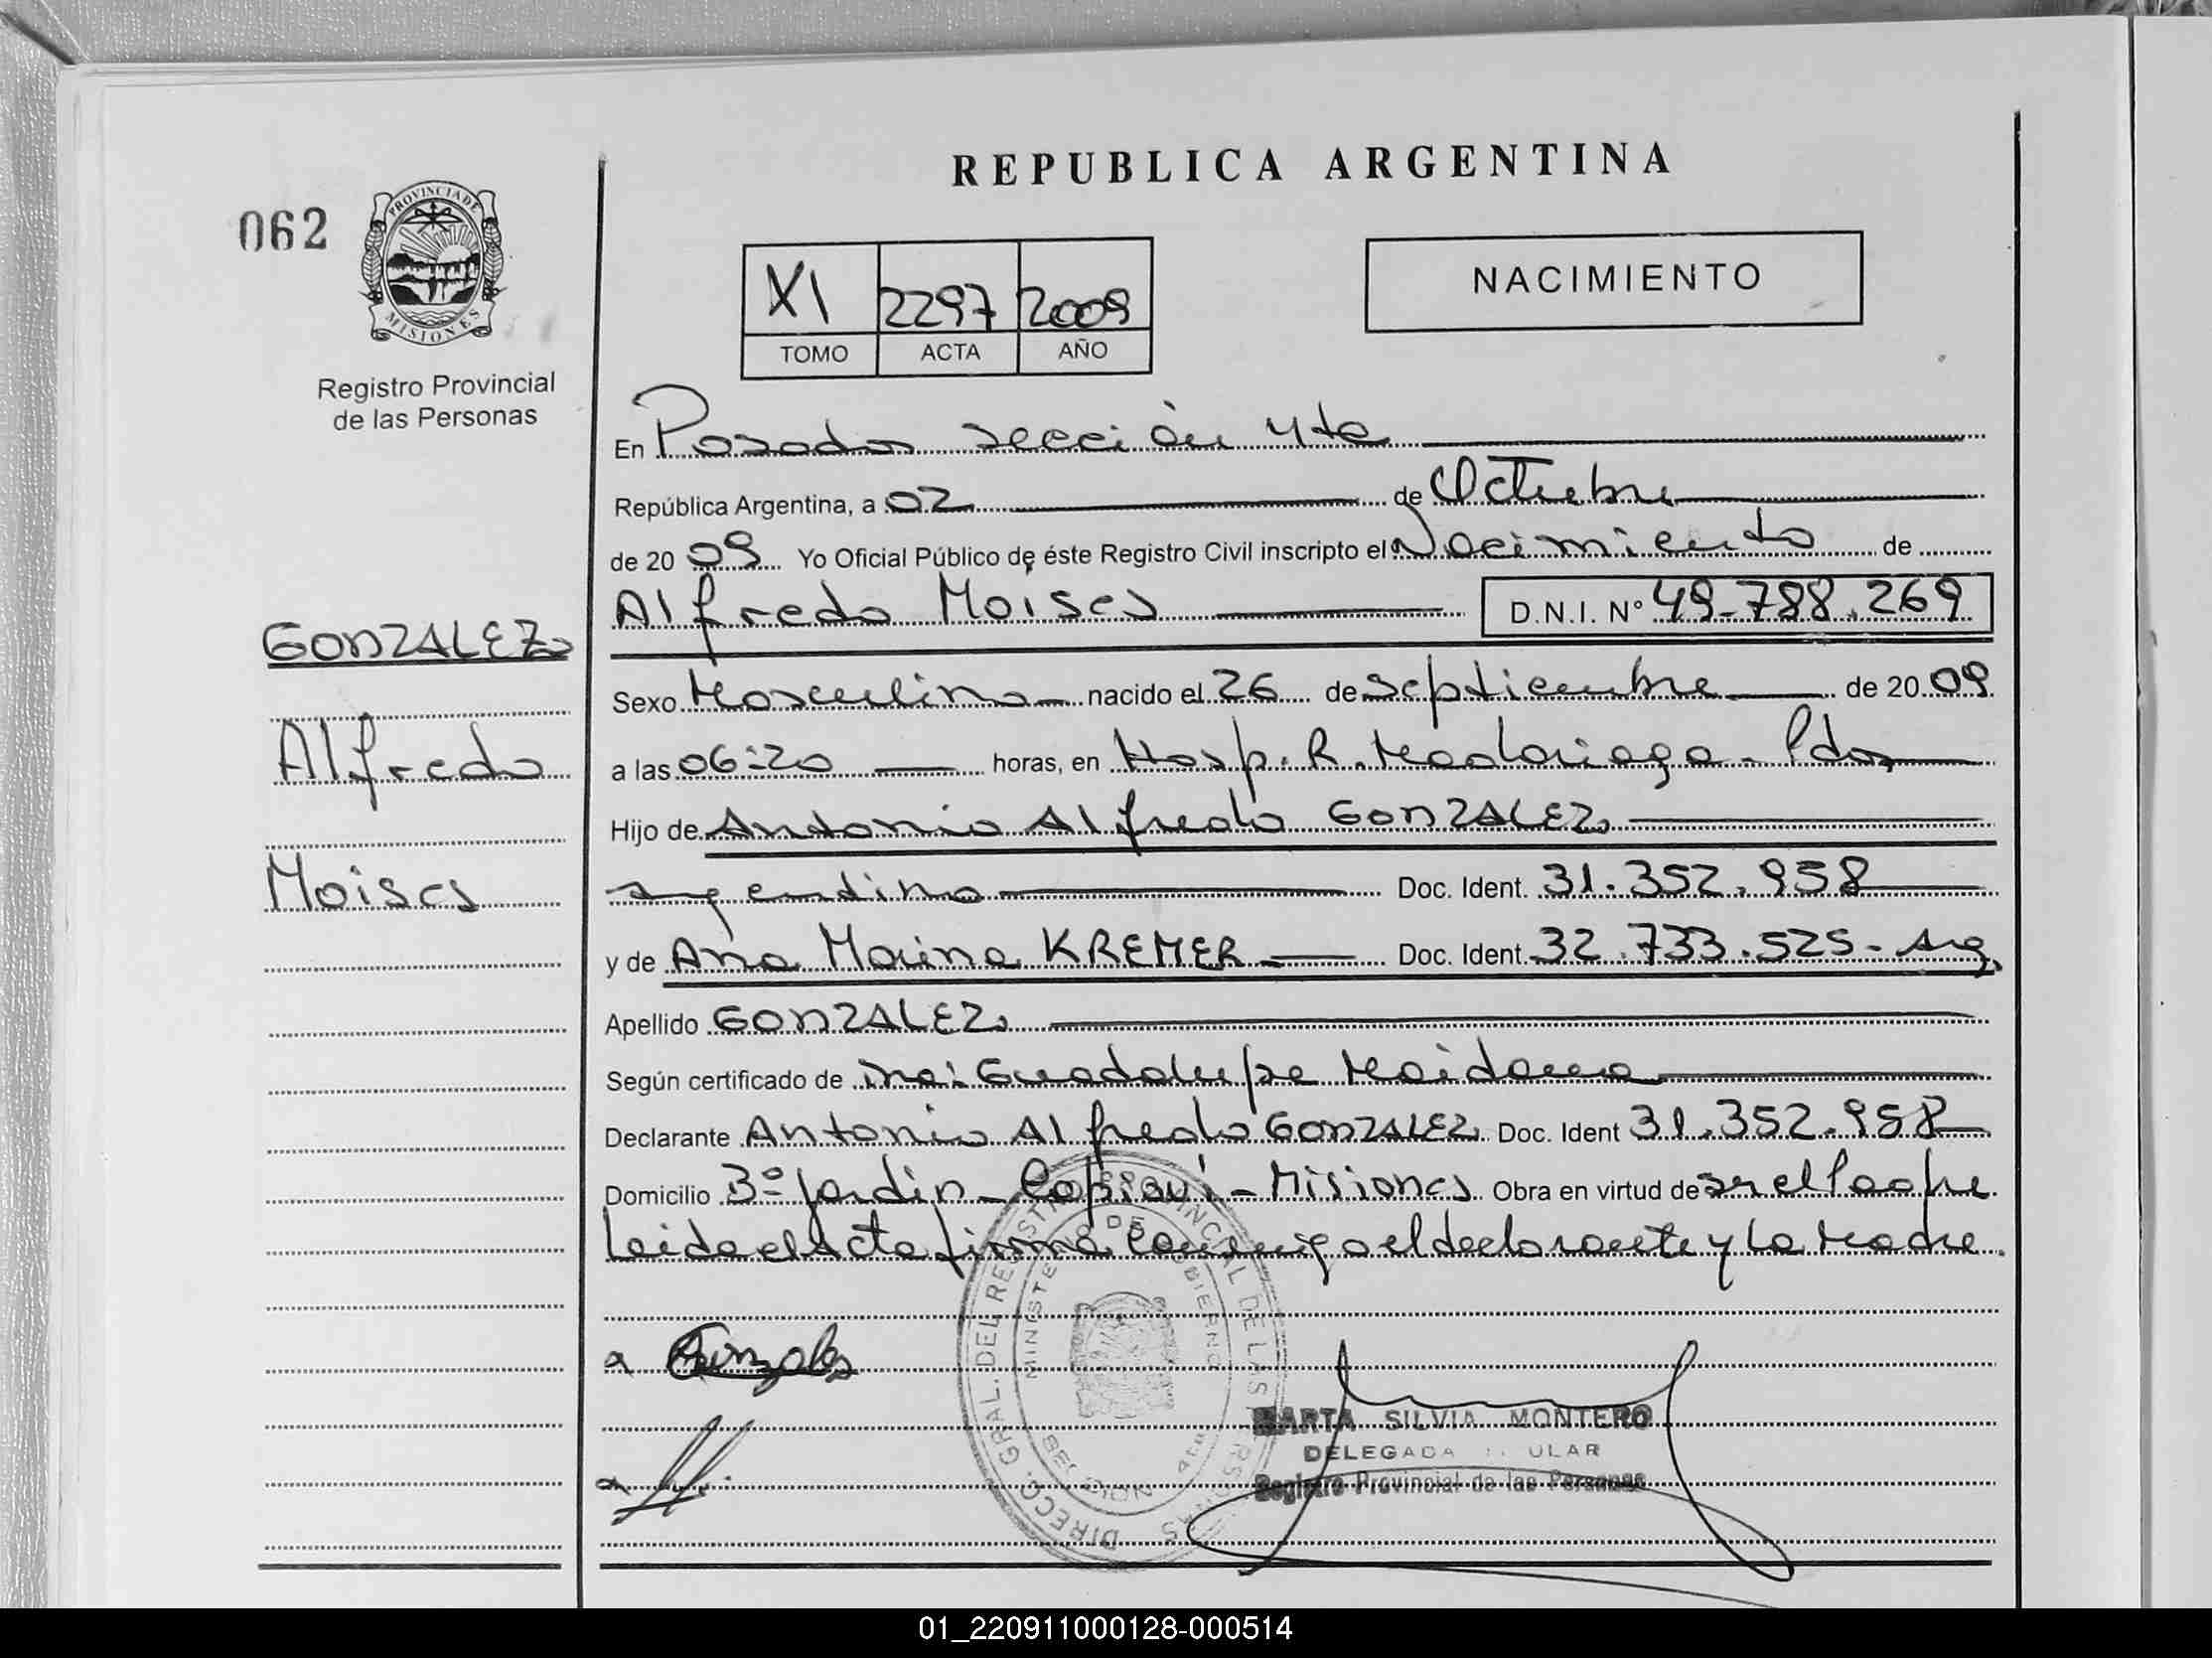 REPUBLICA ARGENTINA
062
PROVINCIA DE
MISIONES
Registro Provincial
de las Personas
XI 2297 2009
TOMO ACTA AÑO
NACIMIENTO
En Posadas sección 4ta
República Argentina, a 02 de Octubre
de 20 09 Yo Oficial Público de éste Registro Civil inscripto el Nacimiento de
Alfredo Moises D.N.I. Nº 49.788.269
GONZALEZ
Alfredo
Moises
Sexo Masculino nacido el 26 de Septiembre de 20 09
a las 06:20 horas, en Hosp. R. Madariaga - Pdas
Hijo de Antonio Alfredo GONZALEZ
argentino Doc. Ident. 31.352.958
y de Ana Maina KREMER Doc. Ident. 32.733.525 - Arg.
Apellido GONZALEZ
Según certificado de Guadalupe Maidana
Declarante Antonio Alfredo GONZALEZ Doc. Ident 31.352.958
Domicilio Bº Jardin - Capiovi - Misiones Obra en virtud de ser el Padre
Leida el Acta firma conmigo el declarante y la Madre.
a Gonzalez
MARTA SILVIA MONTERO
DELEGADA
Registro Provincial de las Personas
DIRECC. GRAL. DEL REGISTRO PROVINCIAL DE LAS PERSONAS
MINISTERIO DE GOBIERNO
01_220911000128-000514